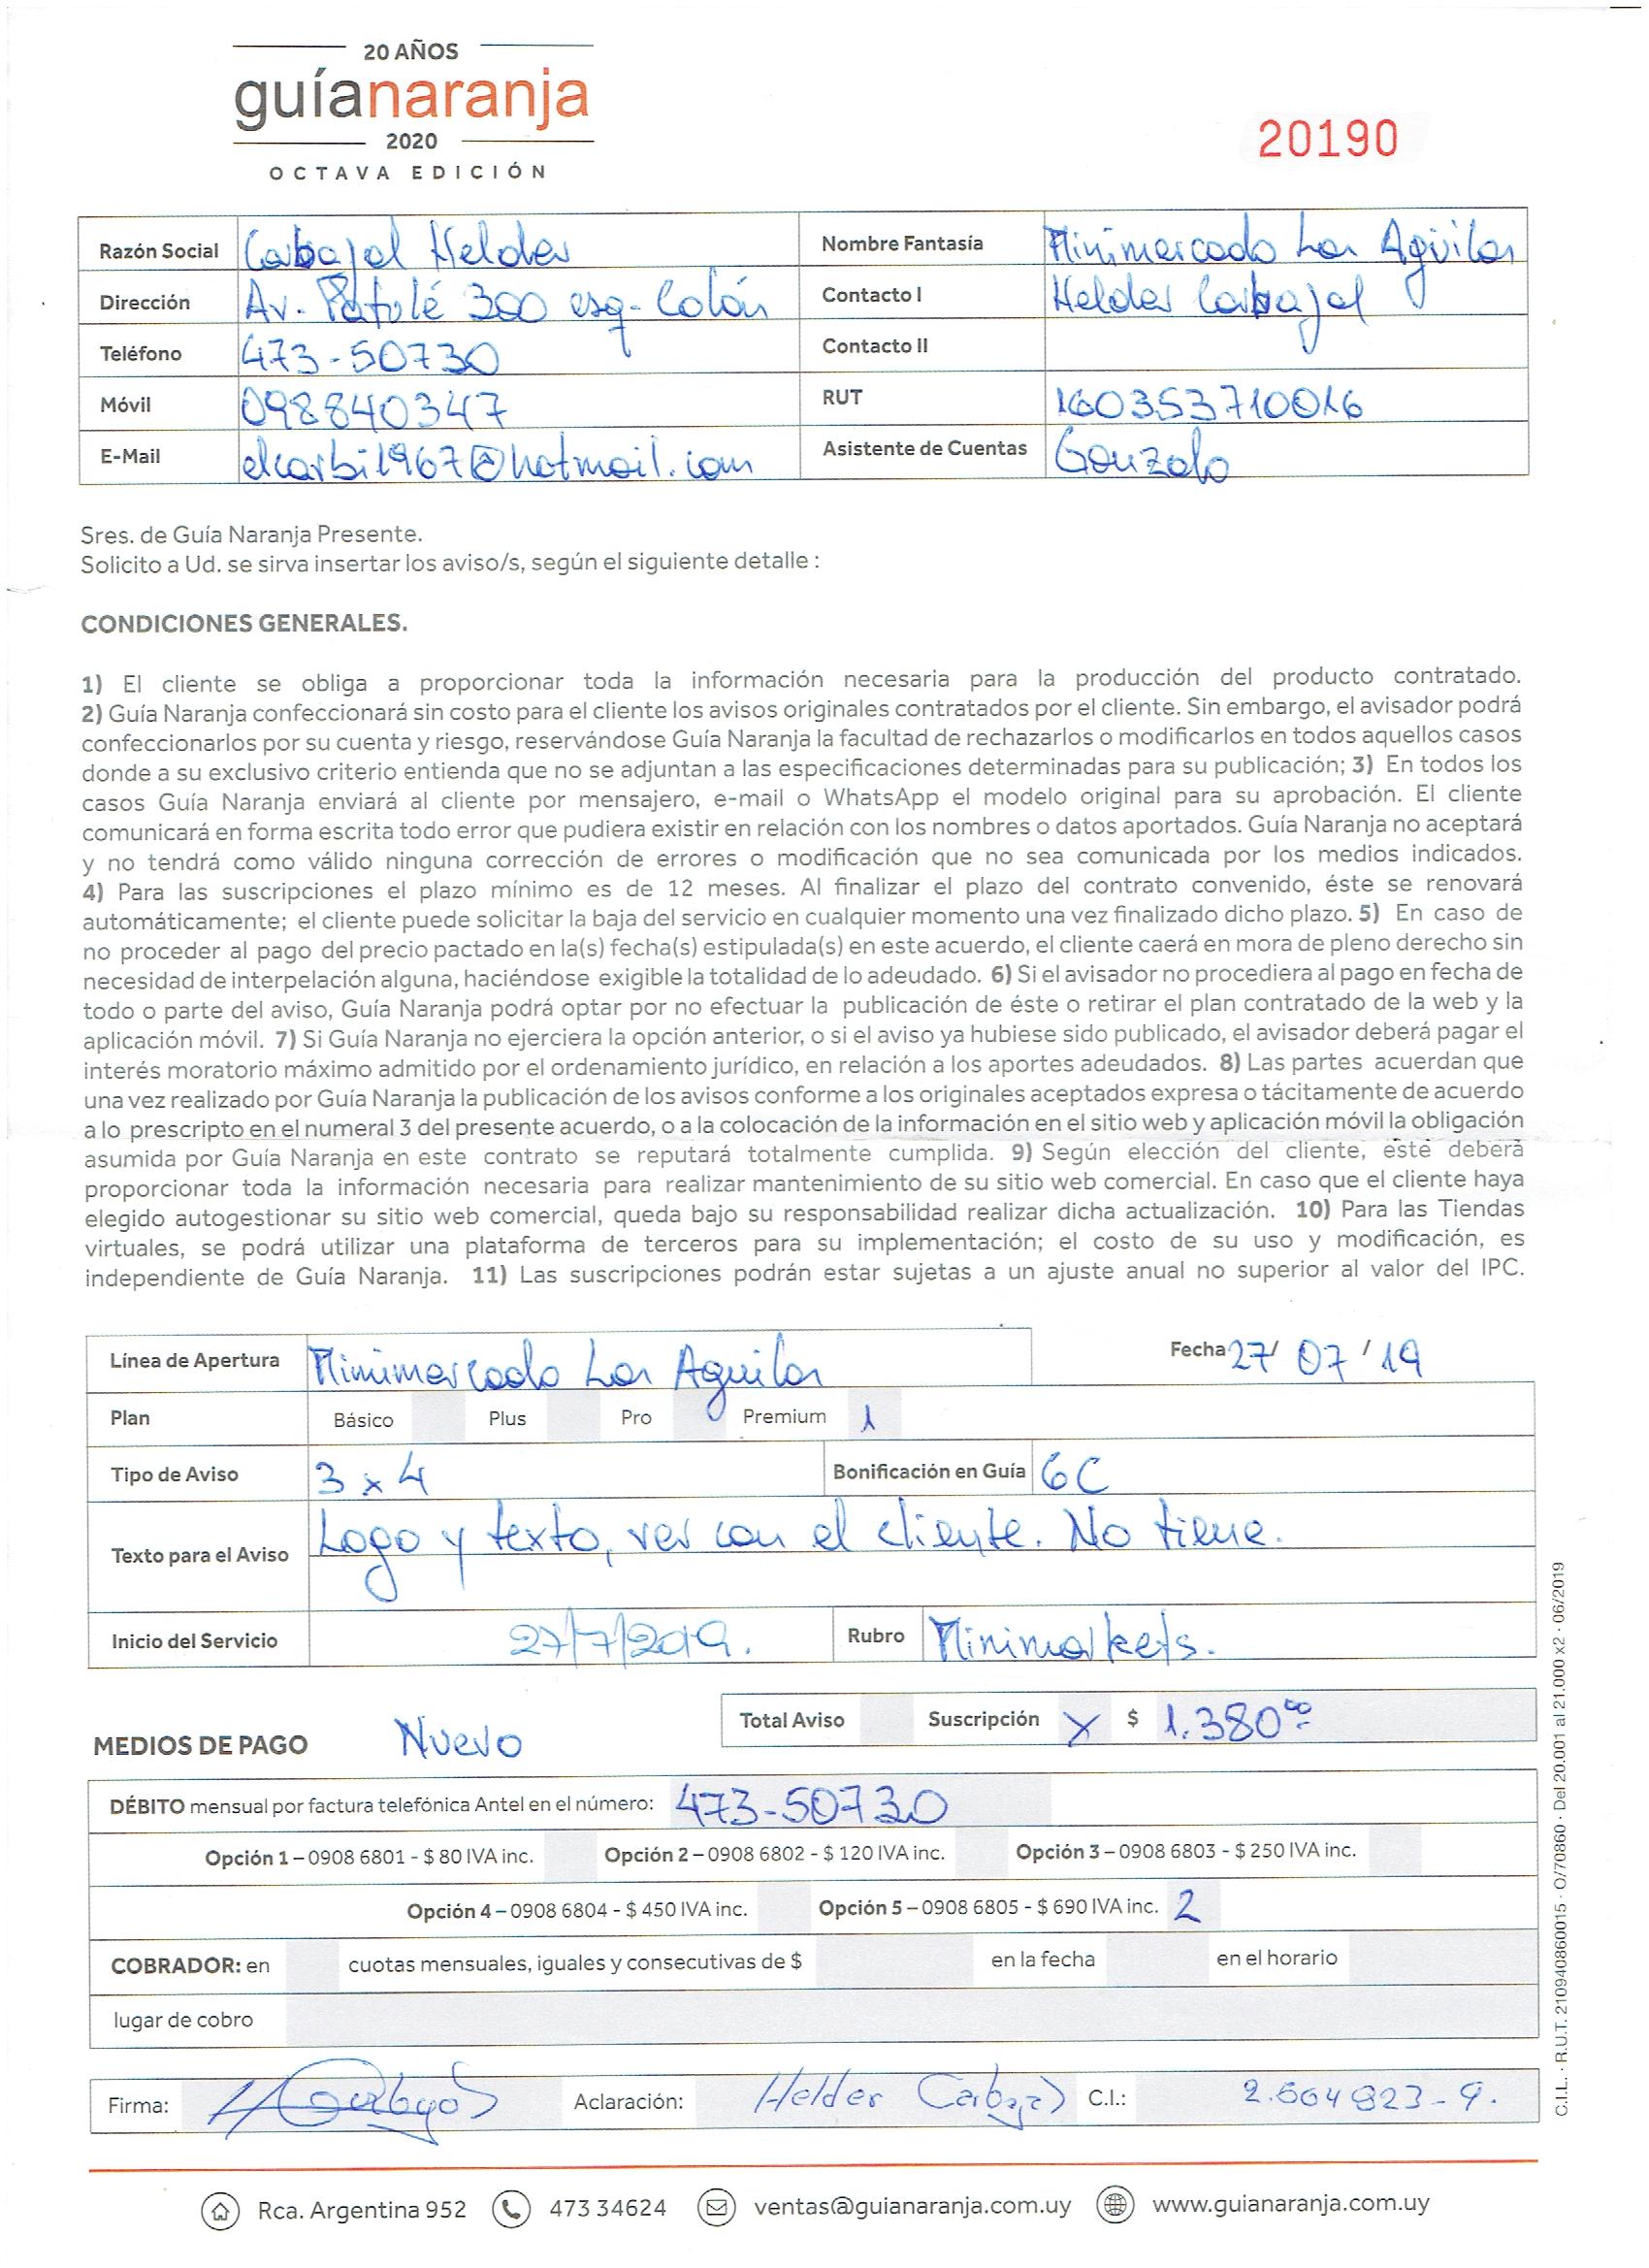 20 AÑOS
guíanaranja
2020
OCTAVA EDICIÓN
20190
Razón Social Carbajal Helder Nombre Fantasía Minimercado Las Aguilas
Dirección Av. Batolé 300 esq. Colón Contacto I Helder Carbajal
Teléfono 473-50730 Contacto II
Móvil 098840347 RUT 160353710016
E-Mail elcarbi1967@hotmail.com Asistente de Cuentas Gonzalo
Sres. de Guía Naranja Presente.
Solicito a Ud. se sirva insertar los aviso/s, según el siguiente detalle :
CONDICIONES GENERALES.
1) El cliente se obliga a proporcionar toda la información necesaria para la producción del producto contratado.
2) Guía Naranja confeccionará sin costo para el cliente los avisos originales contratados por el cliente. Sin embargo, el avisador podrá
confeccionarlos por su cuenta y riesgo, reservándose Guía Naranja la facultad de rechazarlos o modificarlos en todos aquellos casos
donde a su exclusivo criterio entienda que no se adjuntan a las especificaciones determinadas para su publicación; 3) En todos los
casos Guía Naranja enviará al cliente por mensajero, e-mail o WhatsApp el modelo original para su aprobación. El cliente
comunicará en forma escrita todo error que pudiera existir en relación con los nombres o datos aportados. Guía Naranja no aceptará
y no tendrá como válido ninguna corrección de errores o modificación que no sea comunicada por los medios indicados.
4) Para las suscripciones el plazo mínimo es de 12 meses. Al finalizar el plazo del contrato convenido, éste se renovará
automáticamente; el cliente puede solicitar la baja del servicio en cualquier momento una vez finalizado dicho plazo. 5) En caso de
no proceder al pago del precio pactado en la(s) fecha(s) estipulada(s) en este acuerdo, el cliente caerá en mora de pleno derecho sin
necesidad de interpelación alguna, haciéndose exigible la totalidad de lo adeudado. 6) Si el avisador no procediera al pago en fecha de
todo o parte del aviso, Guía Naranja podrá optar por no efectuar la publicación de éste o retirar el plan contratado de la web y la
aplicación móvil. 7) Si Guía Naranja no ejerciera la opción anterior, o si el aviso ya hubiese sido publicado, el avisador deberá pagar el
interés moratorio máximo admitido por el ordenamiento jurídico, en relación a los aportes adeudados. 8) Las partes acuerdan que
una vez realizado por Guía Naranja la publicación de los avisos conforme a los originales aceptados expresa o tácitamente de acuerdo
a lo prescripto en el numeral 3 del presente acuerdo, o a la colocación de la información en el sitio web y aplicación móvil la obligación
asumida por Guía Naranja en este contrato se reputará totalmente cumplida. 9) Según elección del cliente, éste deberá
proporcionar toda la información necesaria para realizar mantenimiento de su sitio web comercial. En caso que el cliente haya
elegido autogestionar su sitio web comercial, queda bajo su responsabilidad realizar dicha actualización. 10) Para las Tiendas
virtuales, se podrá utilizar una plataforma de terceros para su implementación; el costo de su uso y modificación, es
independiente de Guía Naranja. 11) Las suscripciones podrán estar sujetas a un ajuste anual no superior al valor del IPC.
Línea de Apertura Minimercado Las Aguilas Fecha 27/ 07 / 19
Plan Básico Plus Pro Premium 1
Tipo de Aviso 3 x 4 Bonificación en Guía 6C
Texto para el Aviso Logo y texto, ver con el cliente. No tiene.
Inicio del Servicio 27/7/2019. Rubro Minimarkets.
Total Aviso Suscripción X $ 1.380.00
MEDIOS DE PAGO Nuevo
DÉBITO mensual por factura telefónica Antel en el número: 473-50730
Opción 1 – 0908 6801 - $ 80 IVA inc. Opción 2 – 0908 6802 - $ 120 IVA inc. Opción 3 – 0908 6803 - $ 250 IVA inc.
Opción 4 – 0908 6804 - $ 450 IVA inc. Opción 5 – 0908 6805 - $ 690 IVA inc. 2
COBRADOR: en cuotas mensuales, iguales y consecutivas de $ en la fecha en el horario
lugar de cobro
Firma: Aclaración: Helder Carbajal C.I.: 2.604823-9.
C.I.L. · R.U.T. 210940860015 · O/70860 · Del 20.001 al 21.000 x2 · 06/2019
Rca. Argentina 952 473 34624 ventas@guianaranja.com.uy www.guianaranja.com.uy